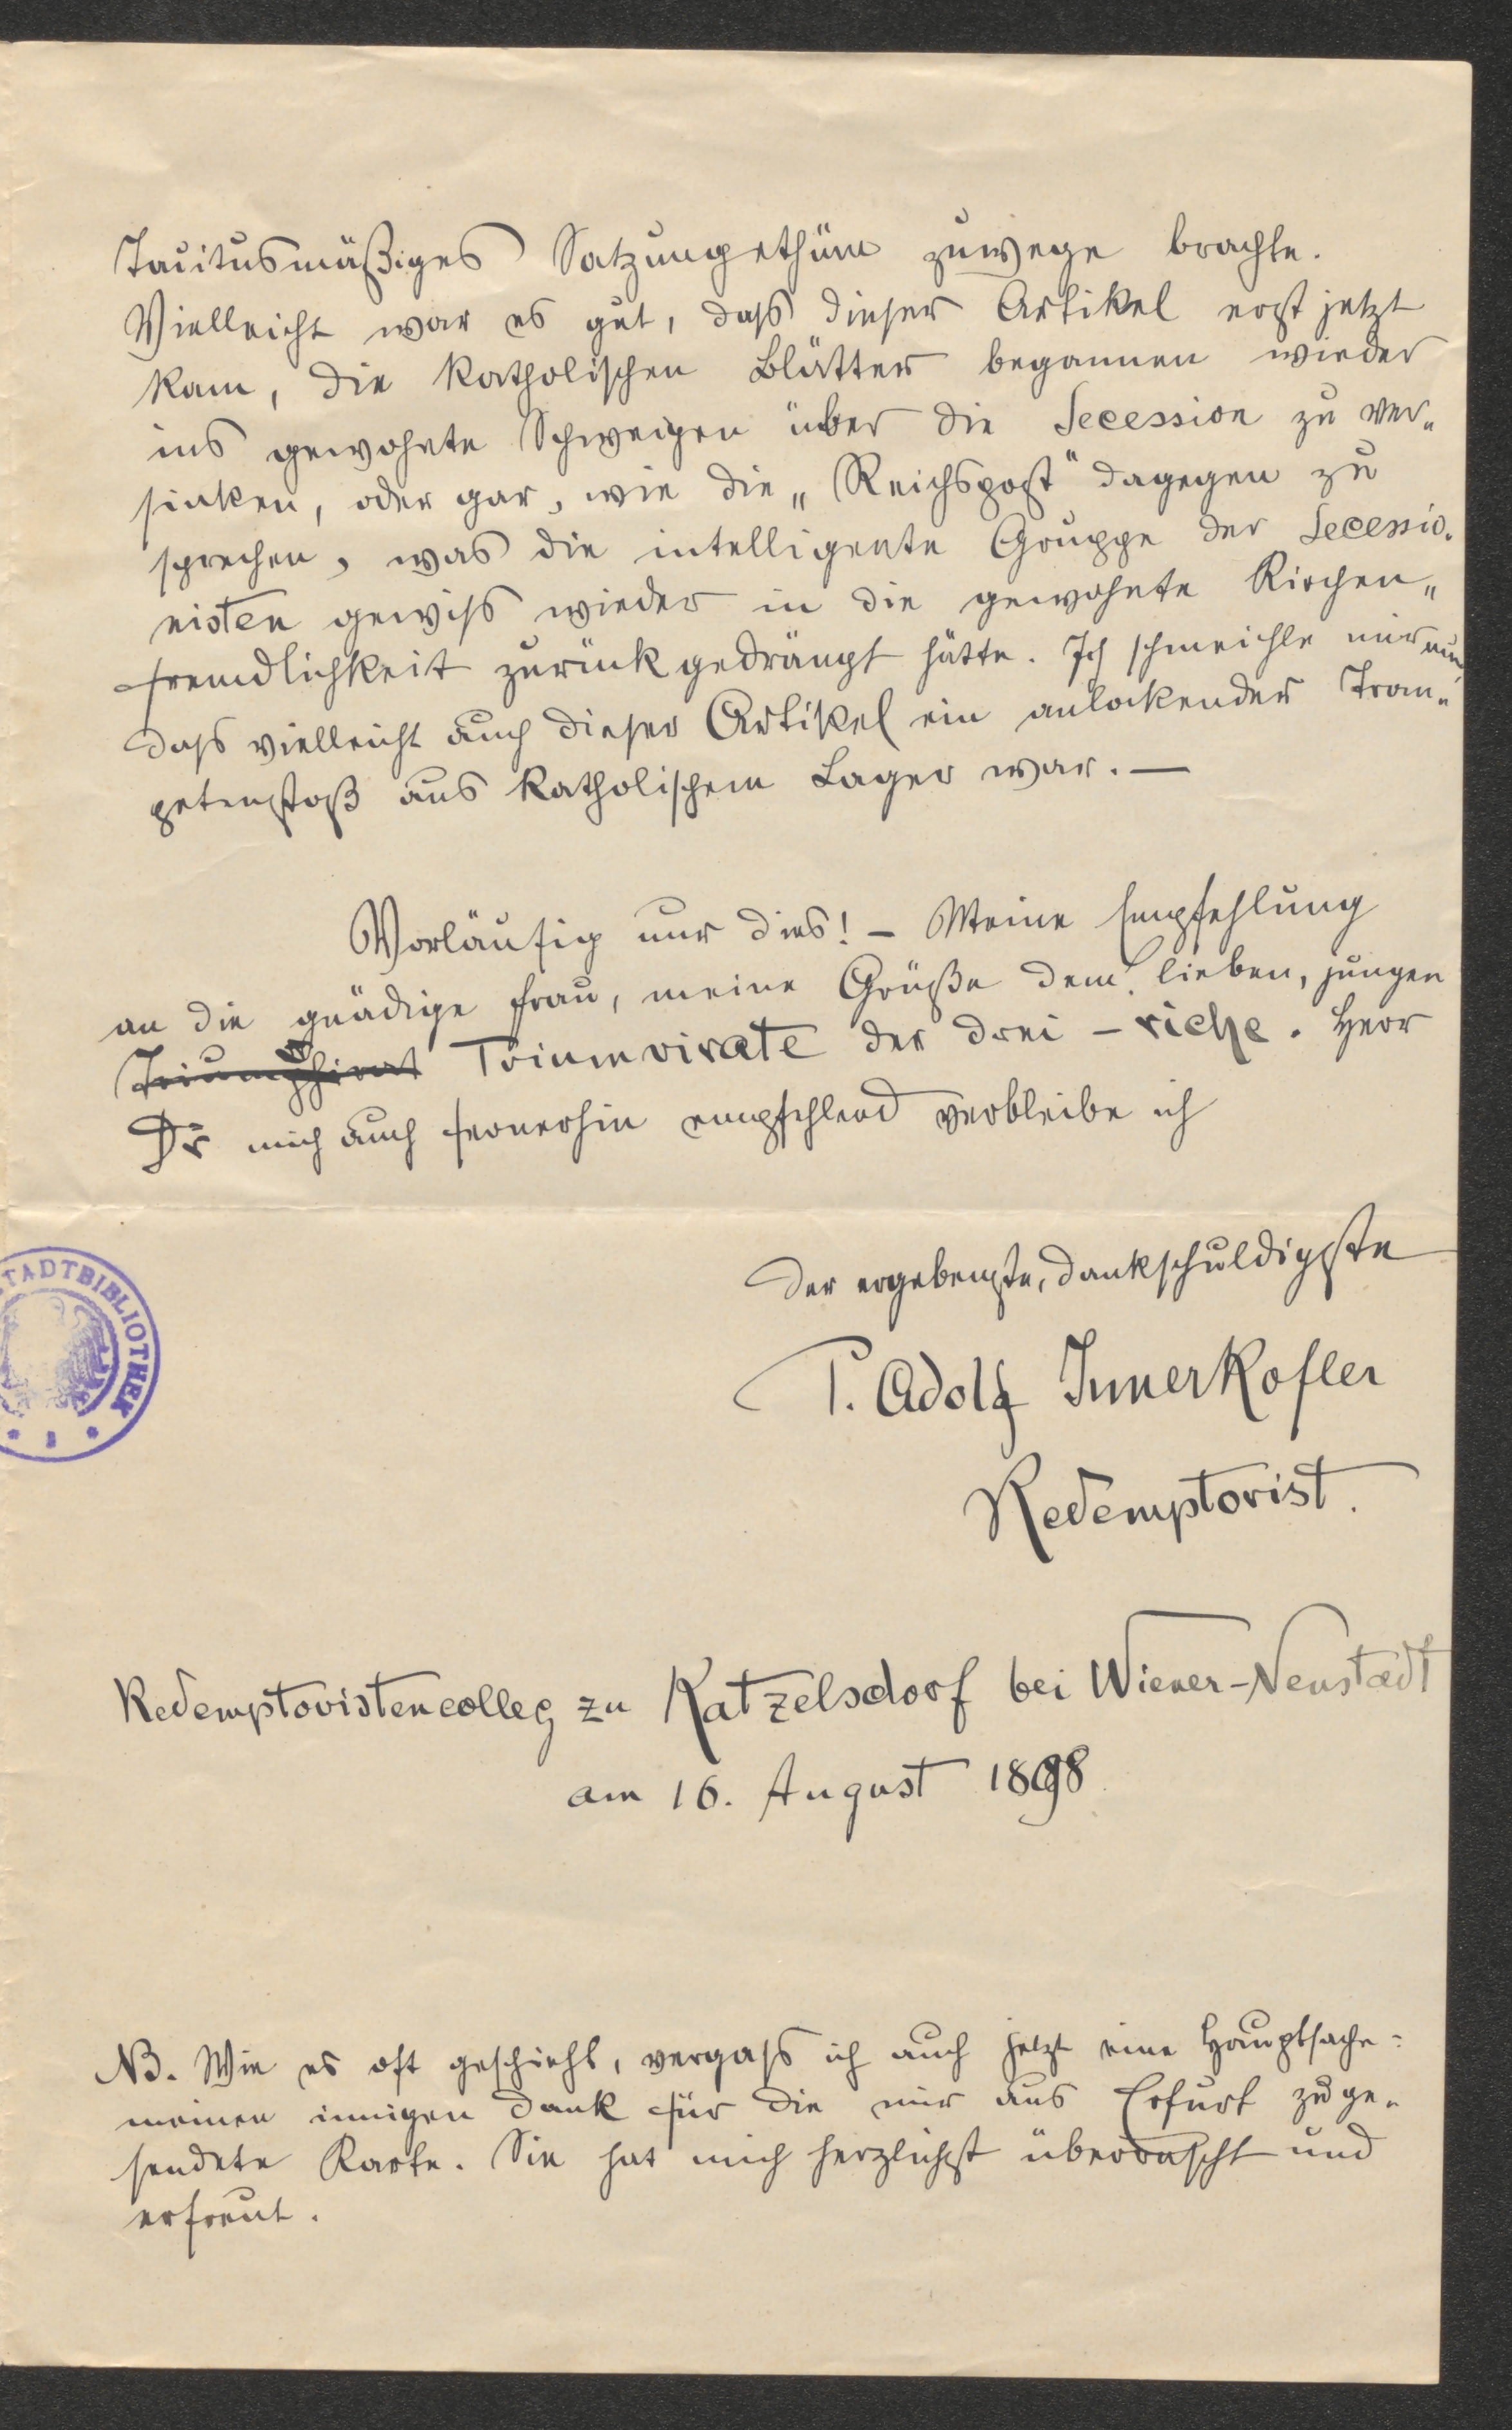 Tacitusmäßiges Satzungethüm zuwege brachte.
Vielleicht war es gut, dass dieser Artikel erst jetzt
kam, die katholischen Blätter begannen wieder
ins gewohnte Schweigen über die Secession zu ver„
sinken, oder gar, wie die „Reichspost“ dagegen zu
sprechen, was die intelligente Gruppe der Secessio„
nisten gewiss wieder in die gewohnte Kirchen„
fremdlichkeit zurückgedrängt hätte. Ich schmeichle mir nun,
dass vielleicht auch dieser Artikel ein anlockender Trom„
petenstoß aus katholischem Lager war. —
Vorläufig nur dies! – Meine Empfehlung
an die gnädige Frau, meine Grüße dem lieben, jungen
Triumvirate der drei –riche. Herr
Dr mich auch fernerhin empfehlend verbleibe ich
der ergebenste, dankschuldigste
P. Adolf Innerkofler
Redemptorist.
STADTBIBLIOTHEK
Redemptoristencolleg zu Katzelsdorf bei Wiener-Neustadt
am 16. August 1898
NB. Wie es oft geschieht, vergass ich auch jetzt eine Hauptsache:
meinen innigen Dank für die mir aus Erfurt zuge„
sendete Karte. Sie hat mich herzlichst überrascht und
erfreut.